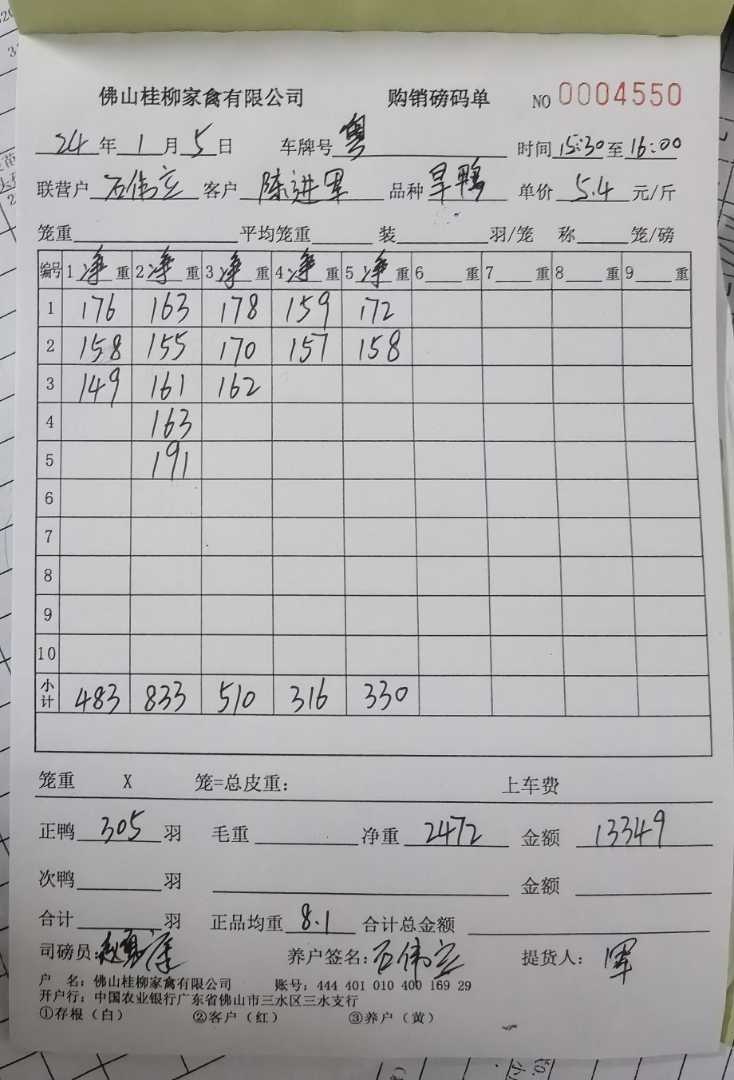 佛山桂柳家禽有限公司 购销磅码单 NO 0004550
24年1月5日 车牌号 粤 时间 15:30至16:00
联营户 石伟立 客户 陈进军 品种 旱鸭 单价 5.4 元/斤
笼重 平均笼重 装 羽/笼 称 笼/磅
编号 1净重 2净重 3净重 4净重 5净重 6重 7重 8重 9重
1 176 163 178 159 172
2 158 155 170 157 158
3 149 161 162
4 163
5 191
6
7
8
9
10
小计 483 833 510 316 330
笼重 X 笼=总皮重: 上车费
正鸭 305 羽 毛重 净重 2472 金额 13349
次鸭 羽 金额
合计 羽 正品均重 8.1 合计总金额
司磅员: 养户签名:石伟立 提货人: 军
户 名: 佛山桂柳家禽有限公司 账号: 444 401 010 400 169 29
开户行: 中国农业银行广东省佛山市三水区三水支行
①存根(白) ②客户(红) ③养户(黄)